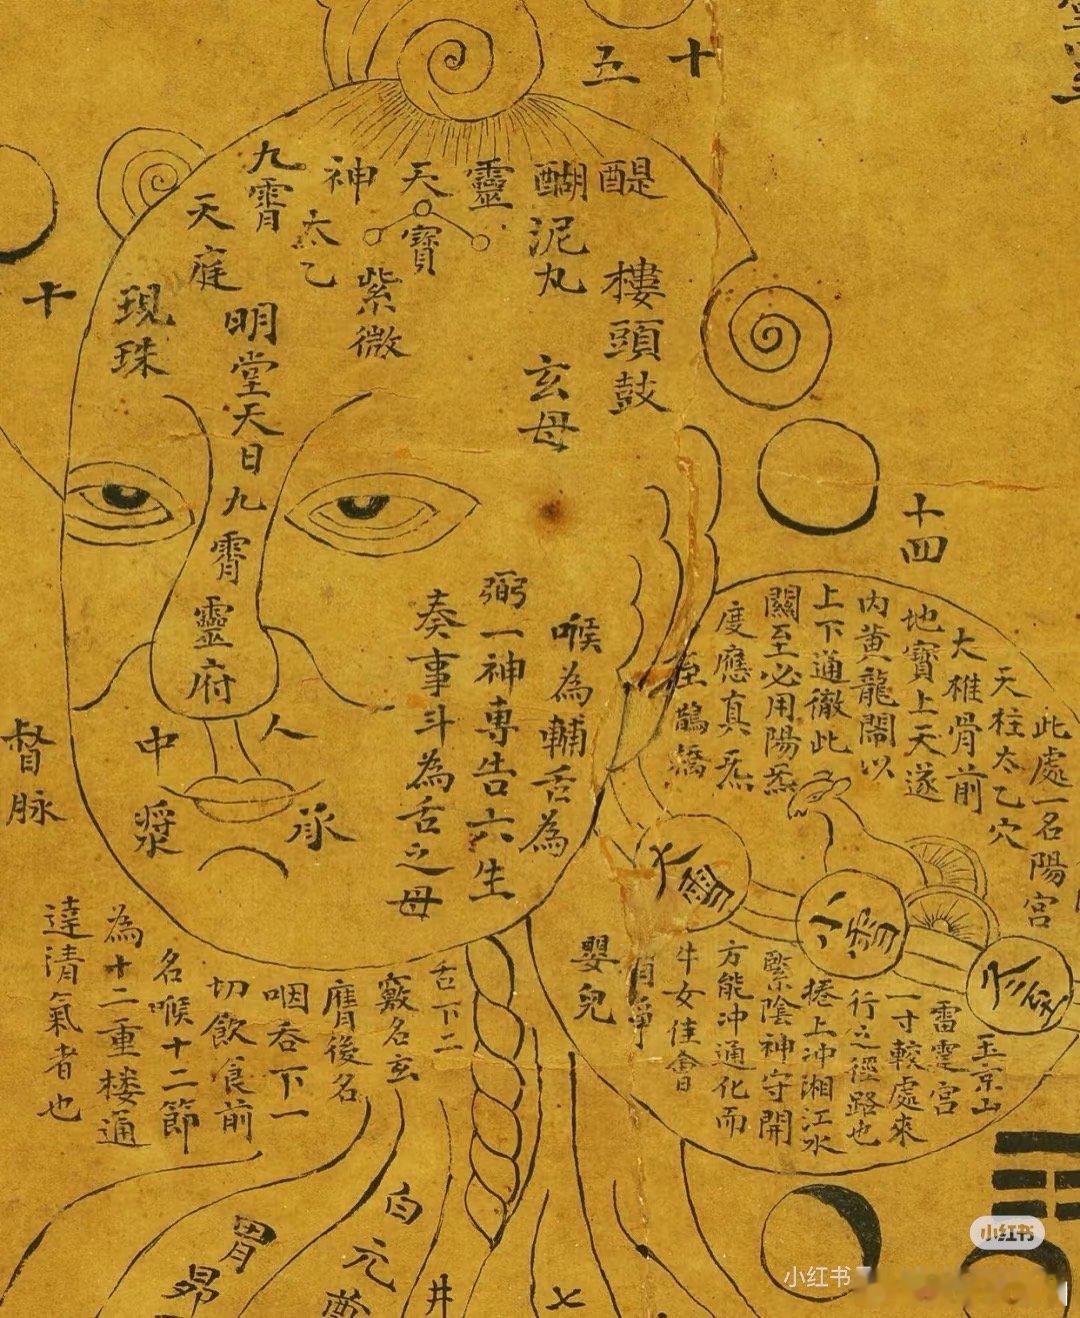 十五
醍醐
靈
天寶
神
太乙
九霄
天庭
泥丸
樓頭鼓
玄母
紫微
明堂天日九霄靈府
現珠
十
十四
喉為輔舌為
弼一神專告六生
奏事斗為舌之母
人中
承漿
督脉
此處一名陽宮
天柱太乙穴
大椎骨前
地寶上天遂
內黄龍閙以
上下通徹此
關至必用陽炁
度應真炁
至鵲橋
大雪
小雪
玉京山
雷霆宮
一寸較處來
行之徑路也
捲上冲湘江水
繫陰神守開
方能冲通化而
牛女佳會
嬰兒
舌下二
竅名玄
膺後名
咽吞下一
切飲食前
名喉十二節
為十二重楼通
達清氣者也
自元
井
七
胃
昴
小红书
小红书